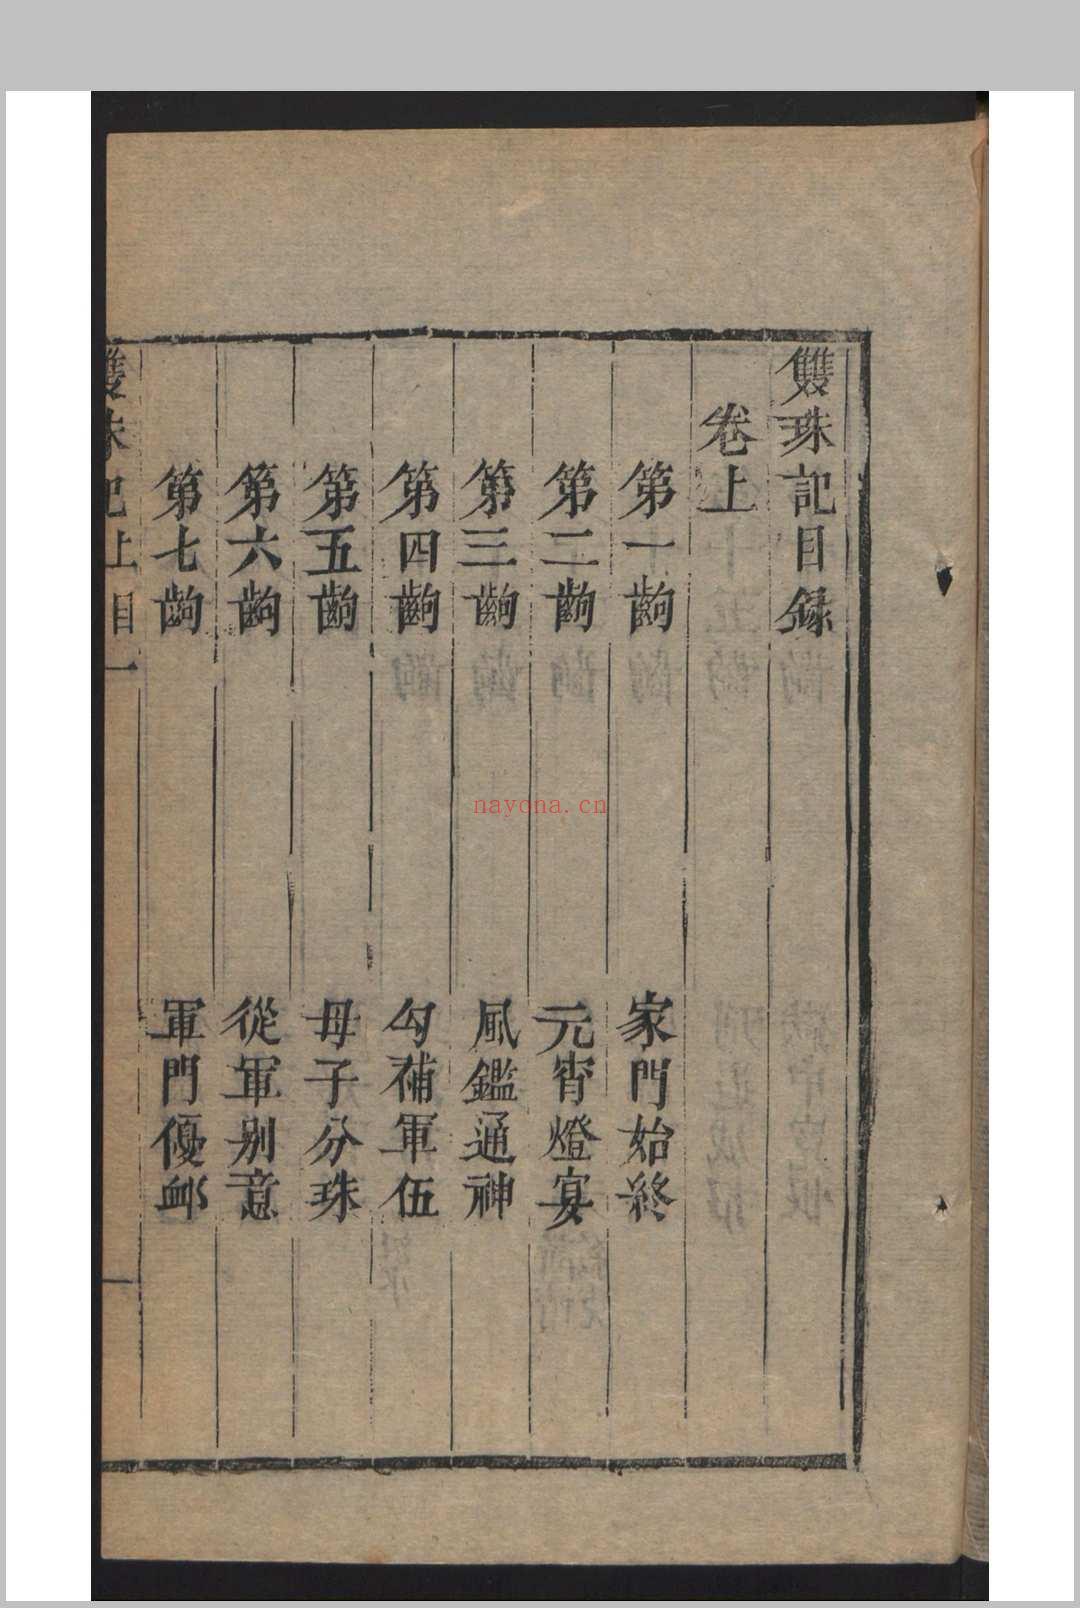 雙珠記目録
卷上
第一齣 家門始終
第二齣 元宵燈宴
第三齣 風鑑通神
第四齣 勾補軍伍
第五齣 母子分珠
第六齣 從軍别意
第七齣 軍門優邺
雙珠記上目一
一
nayona.cn